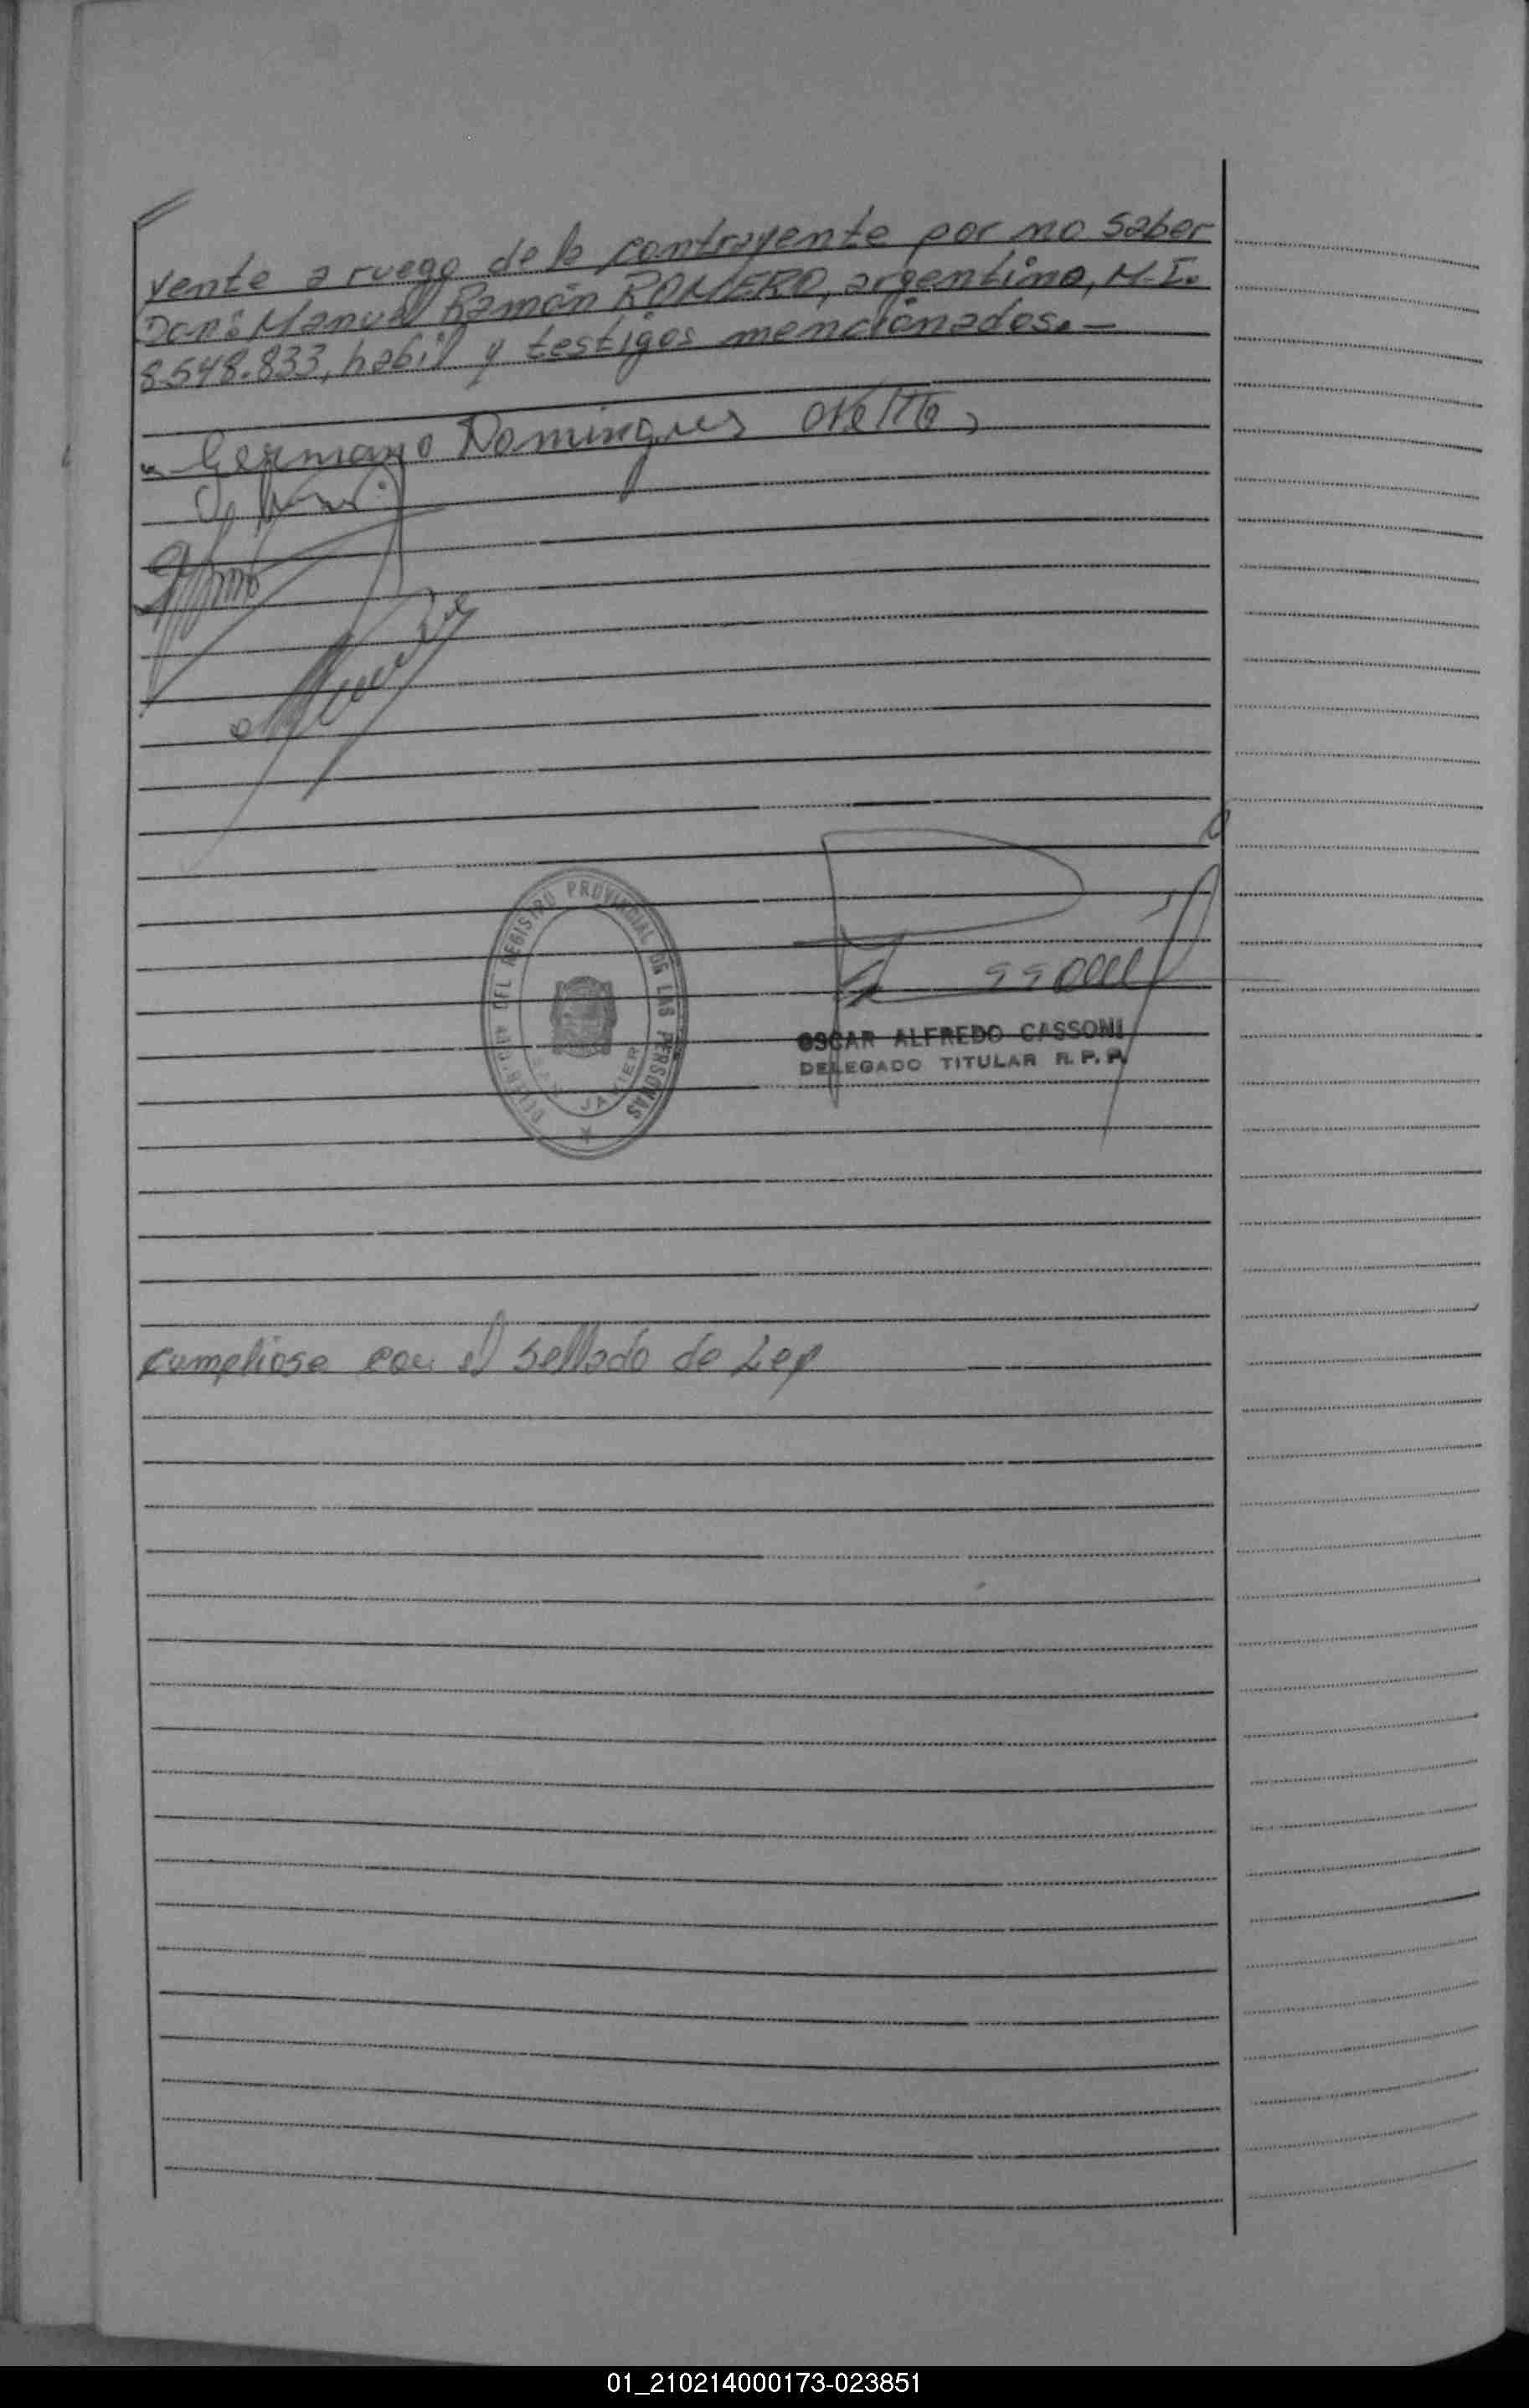 yente a ruego de la contrayente por no saber
Don: Manuel Ramón ROMERO, argentino, M.I.
8.548.833, habil y testigos mencionados.—
Germano Domingues Netto
DEL REGISTRO PROVINCIAL DE LAS PERSONAS
JAVIER
OSCAR ALFREDO CASSONI
DELEGADO TITULAR R.P.P.
cumpliose con el sellado de Ley
01_210214000173-023851